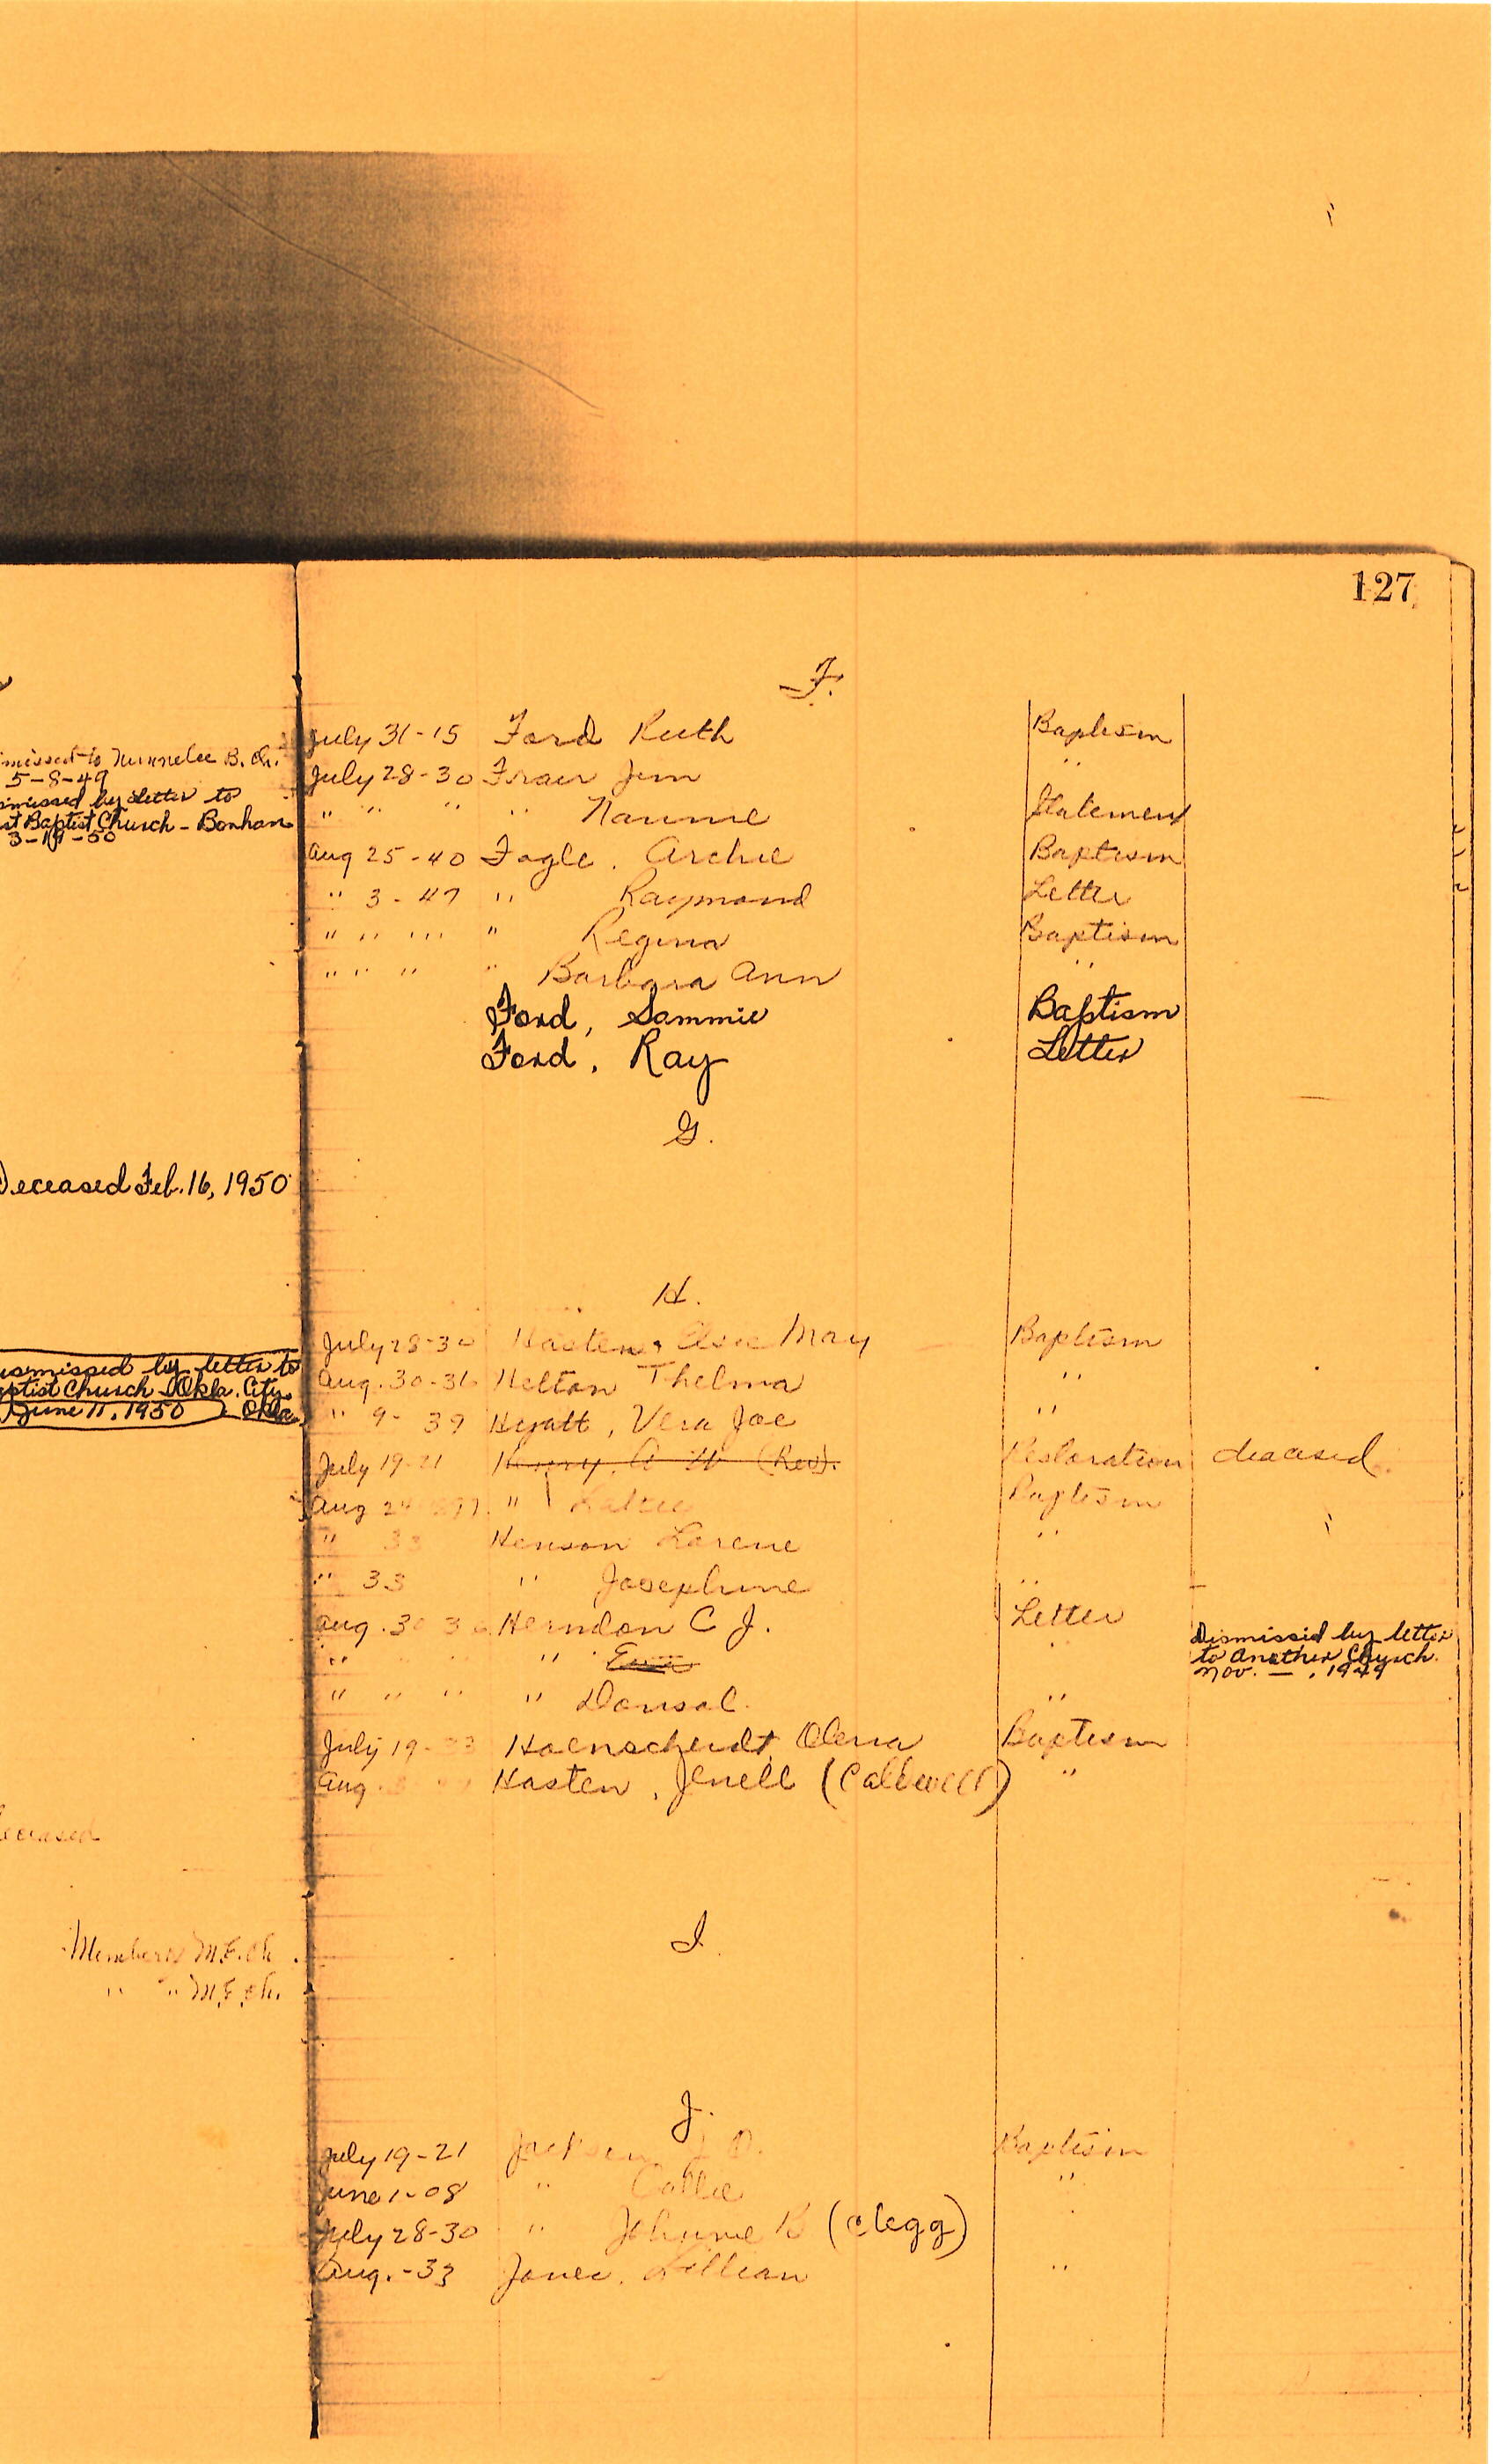 127
missed to Nunnelee B. Ch.
5-8-49
smissed by Letter to
st Baptist Church - Bonham
3-19-50
Deceased Feb. 16, 1950
ismissed by letter to
aptist Church Okla. City,
June 11, 1950 Okla.
eceased
Members M.E. Ch.
" " M.E. Ch.
F.
July 31-15 Ford Ruth Baptism
July 28-30 Jim "
" " " " Naunie Statement
Aug 25-40 Fogle, Archie Baptism
" 3-47 " Raymond Letter
" " " " Regina Baptism
" " " " Barbara Ann "
Ford, Sammie Baptism
Ford, Ray Letter
G.
H.
July 28-30 Hasten, Elsie May Baptism
Aug. 30-36 Helton Thelma "
" 9-39 Hyatt, Vera Joe "
July 19-21 Henry, A W (Rev). Restoration deceased
Aug 24 " Baptism
" 33 Henson Lorene "
" 33 " Josephine "
Aug. 30 Herndon C J. Letter
" " " " Eva " Dismissed by letter
to Another Church.
Nov. — , 1949
" " " " Donsal "
July 19-33 Hoenscheidt, Olena Baptism
Aug Hasten, Jenell (Caldwell) "
I.
J.
July 19-21 Jackson J. D. Baptism
June 1-08 " Callie "
July 28-30 " Johnnie B (Clegg)
Aug.-33 Jones, Lillian "